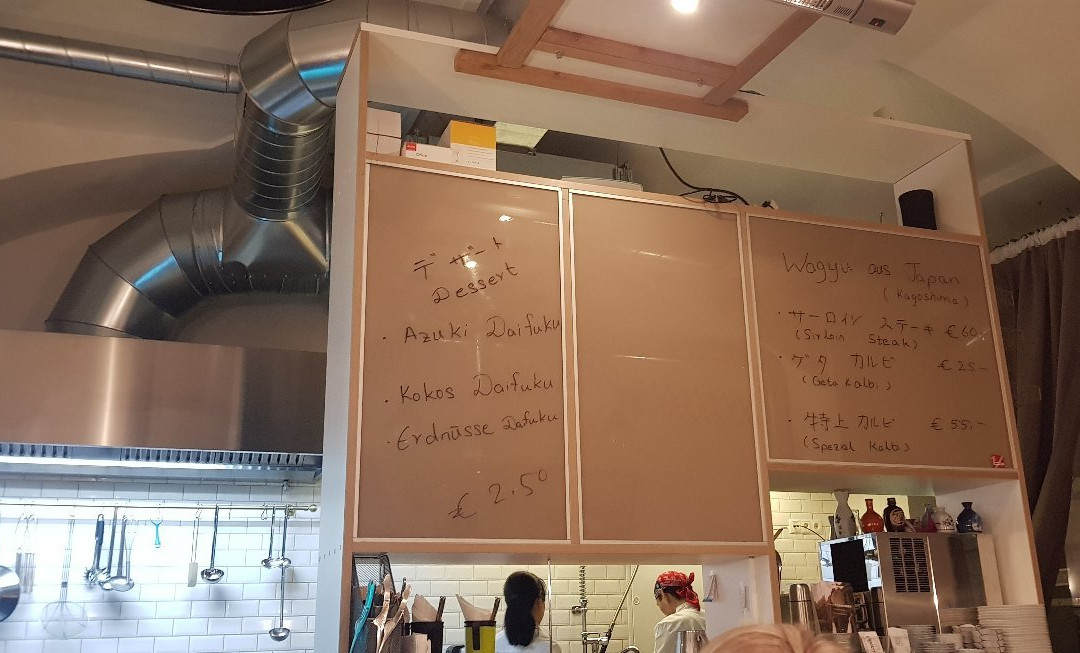 デザート
Dessert
· Azuki Daifuku
· Kokos Daifuku
· Erdnüsse Dafuku
€ 2.50
Wagyu aus Japan
(Kagoshima)
· サーロイン ステーキ € 60.-
(Sirloin Steak)
· ゲタ カルビ € 25.-
(Geta Kalbi)
· 特上 カルビ € 55.-
(Spezal Kalbi)